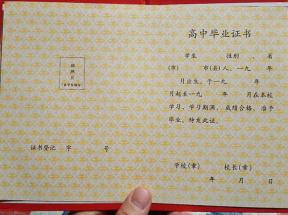 高中毕业证书
照片
学生 性别 ，系
（市） 市（县）人，一九 年
月出生，于一九 年
月起至一九 年 月在本校
学习，学习期满，成绩合格，准予
毕业，特发此证。
证书登记 字 号
学校（章） 校长（章）
年 月 日